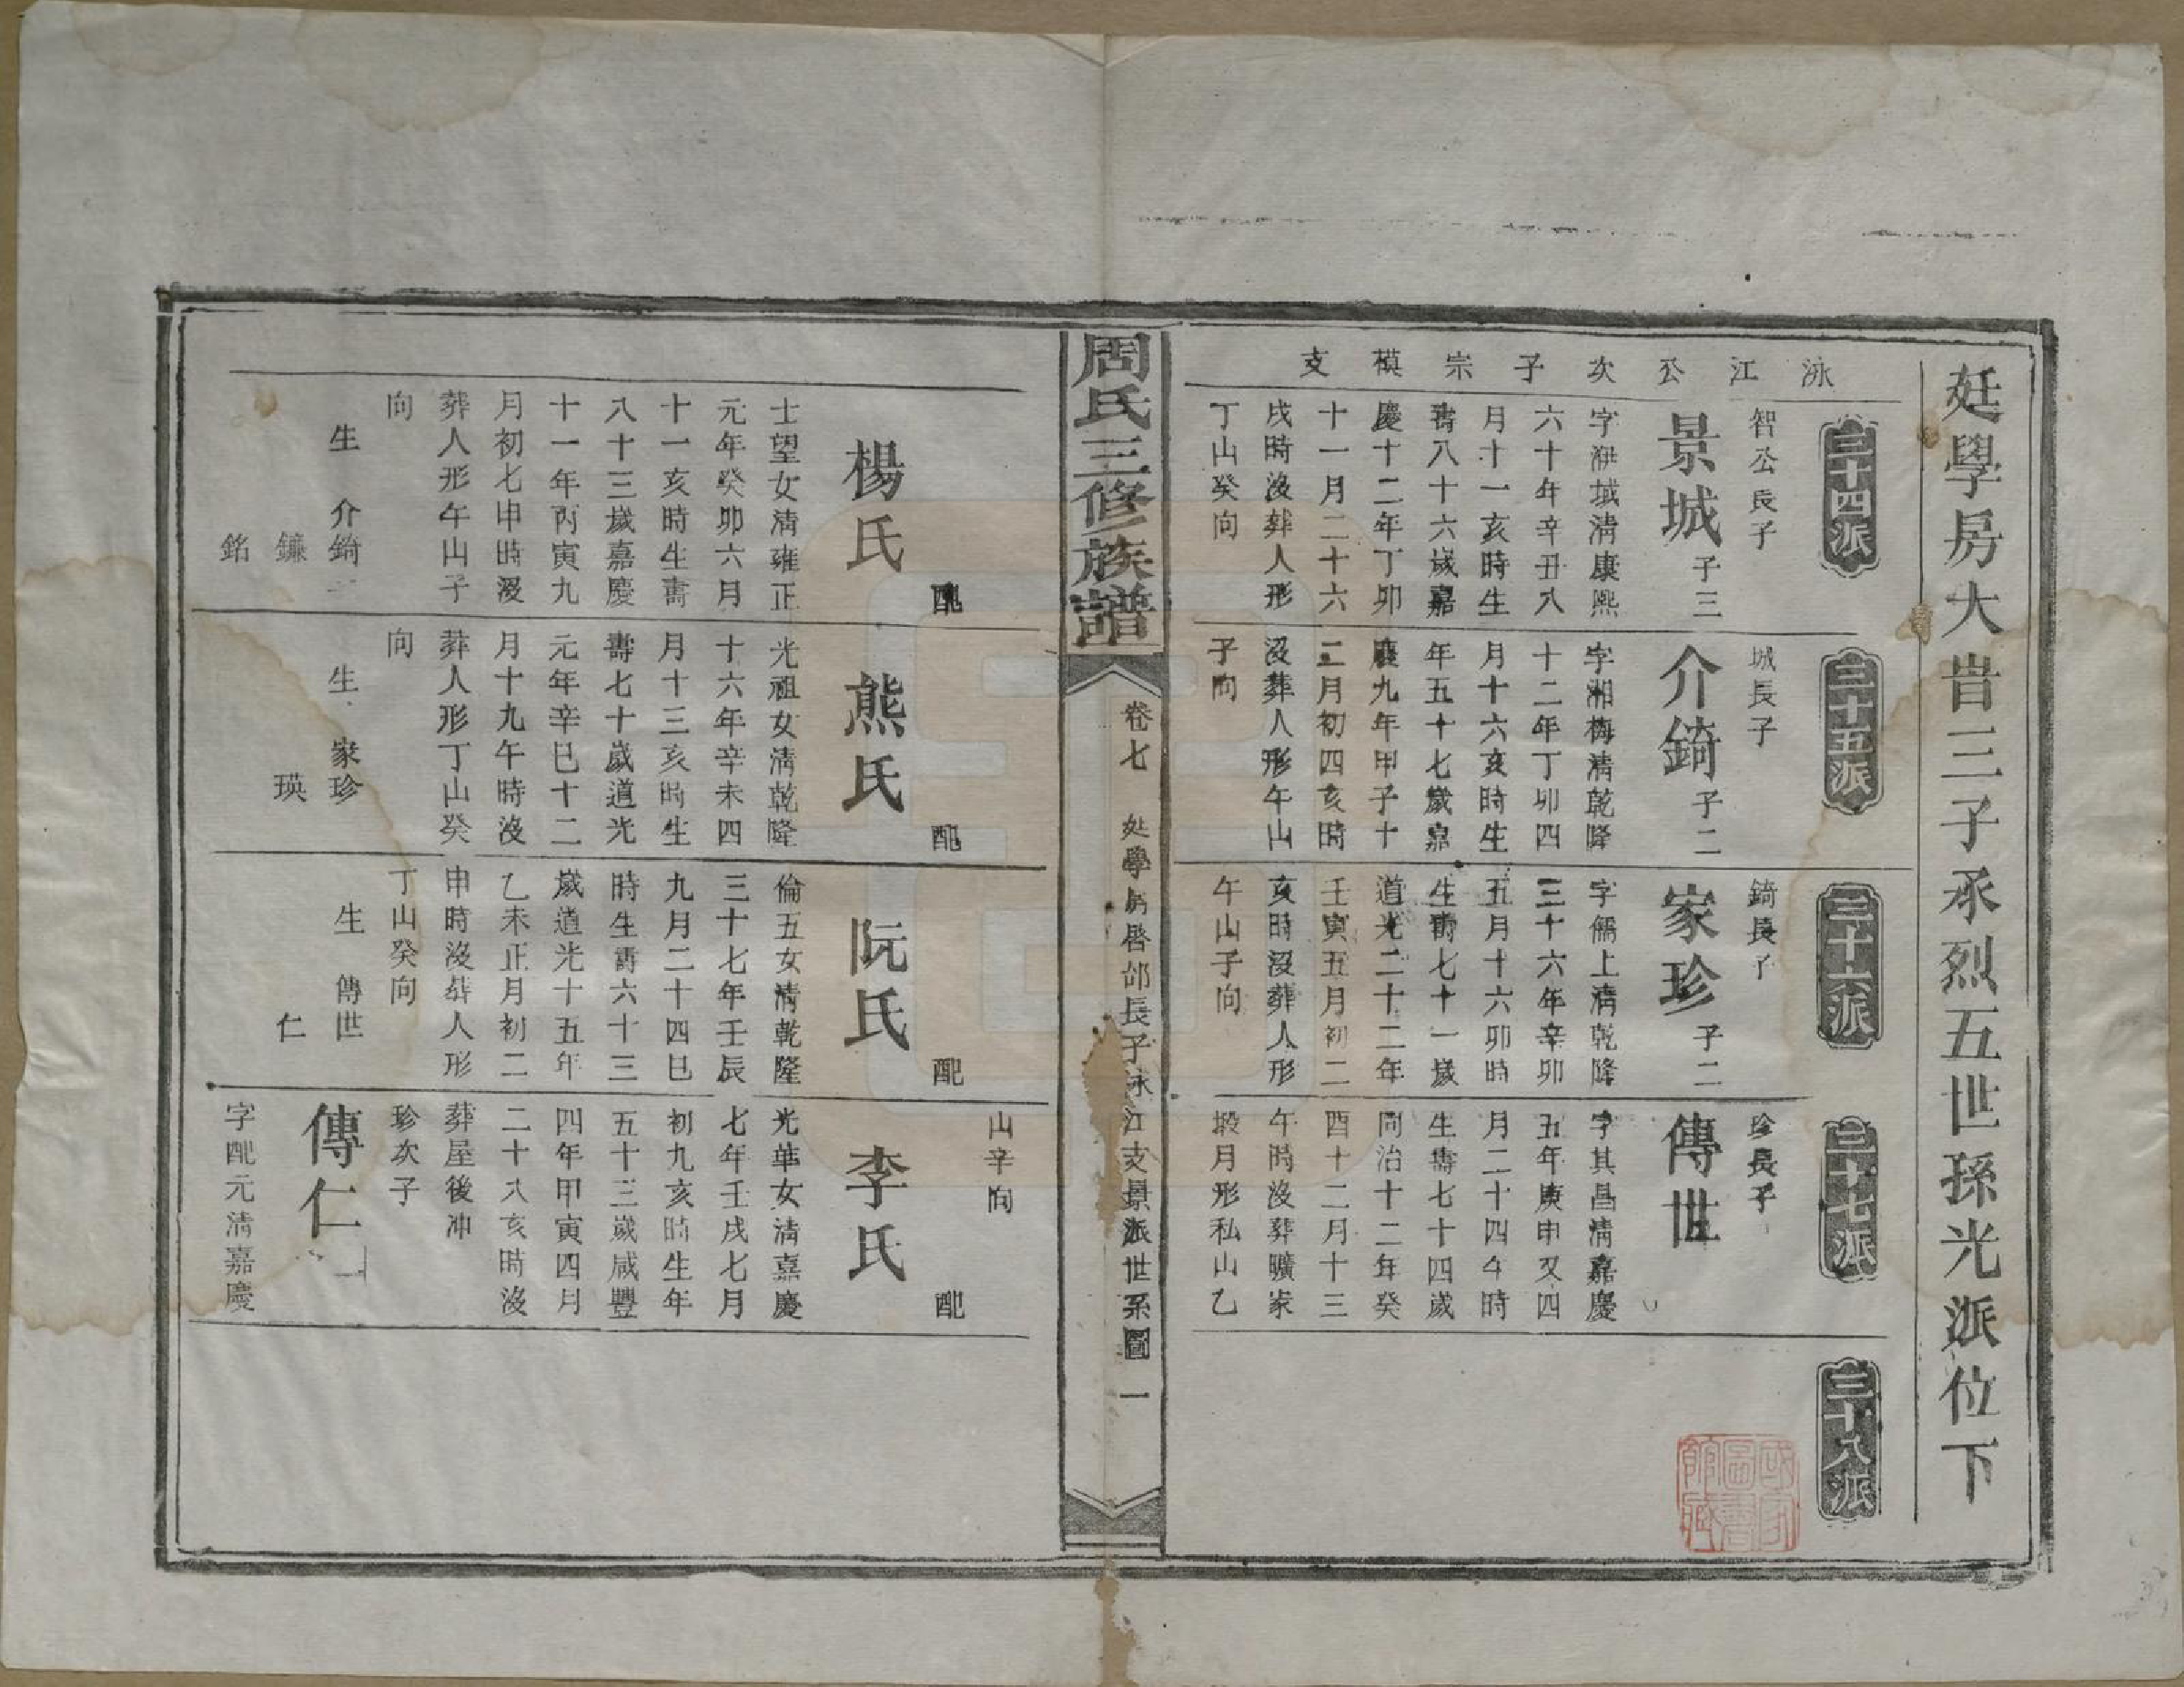 廷學房大昔三子承烈五世孫光派位下
泳江公次子宗模支
三十四派
智公長子
景城 子三
字海域淸康熙
六十年辛丑八
月十一亥時生
壽八十六歲嘉
慶十二年丁卯
十一月二十六
戌時沒葬人形
丁山癸向
三十五派
城長子
介錡 子二
字湘梅淸乾隆
十二年丁卯四
月十六亥時生
年五十七歲嘉
慶九年甲子十
二月初四亥時
沒葬人形午山
子向
三十六派
錡長子
家珍 子二
字儒上淸乾隆
三十六年辛卯
五月十六卯時
生壽七十一歲
道光二十二年
壬寅五月初二
亥時沒葬人形
午山子向
三十七派
珍長子
傳世
字其昌淸嘉慶
五年庚申又四
月二十四午時
生壽七十四歲
同治十二年癸
酉十二月十三
午時沒葬曠家
塅月形私山乙
三十八派
國家圖書館藏
周氏三修族譜
卷七
廷學房啓邰長子泳江支景派世系圖 一
配
楊氏
士望女淸雍正
元年癸卯六月
十一亥時生壽
八十三歲嘉慶
十一年丙寅九
月初七申時沒
葬人形午山子
向
生 介錡
鐮
銘
配
熊氏
光祖女淸乾隆
十六年辛未四
月十三亥時生
壽七十歲道光
元年辛巳十二
月十九午時沒
葬人形丁山癸
向
生 家珍
瑛
配
阮氏
倫五女淸乾隆
三十七年壬辰
九月二十四巳
時生壽六十三
歲道光十五年
乙未正月初二
申時沒葬人形
丁山癸向
生 傳世
仁
山辛向
配
李氏
光華女淸嘉慶
七年壬戌七月
初九亥時生年
五十三歲咸豐
四年甲寅四月
二十八亥時沒
葬屋後冲
珍次子
傳仁
字配元淸嘉慶